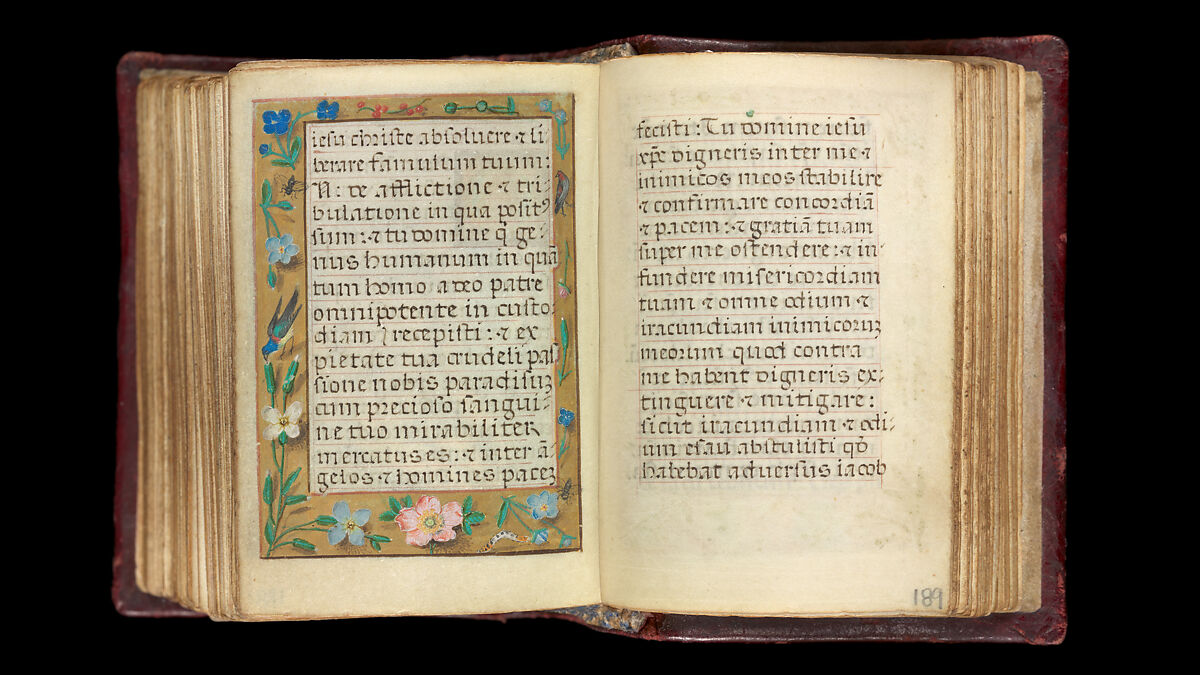 iesu christe absoluere ⁊ li
berare famulum tuum:
N: de afflictione ⁊ tri-
bulatione in qua positꝰ
sum: ⁊ tu domine q̃ ge-
nus humanum in quã
tum homo a deo patre
omnipotente in custo-
diam recepisti: ⁊ ex
pietate tua crudeli pas
sione nobis paradisuꝫ
cum precioso sangui-
ne tuo mirabiliter
mercatus es: ⁊ inter ã-
gelos ⁊ homines paceꝫ
fecisti: Tu domine iesu
xp̃e digneris inter me ⁊
inimicos meos stabilire
⁊ confirmare concordiã
⁊ pacem: ⁊ gratiã tuam
super me ostendere: ⁊ in-
fundere misericordiam
tuam ⁊ omne odium ⁊
iracundiam inimicoruꝫ
meorum quod contra
me habent digneris ex-
tinguere ⁊ mitigare:
sicut iracundiam ⁊ odi-
um esau abstulisti qď
habebat aduersus iacob
189